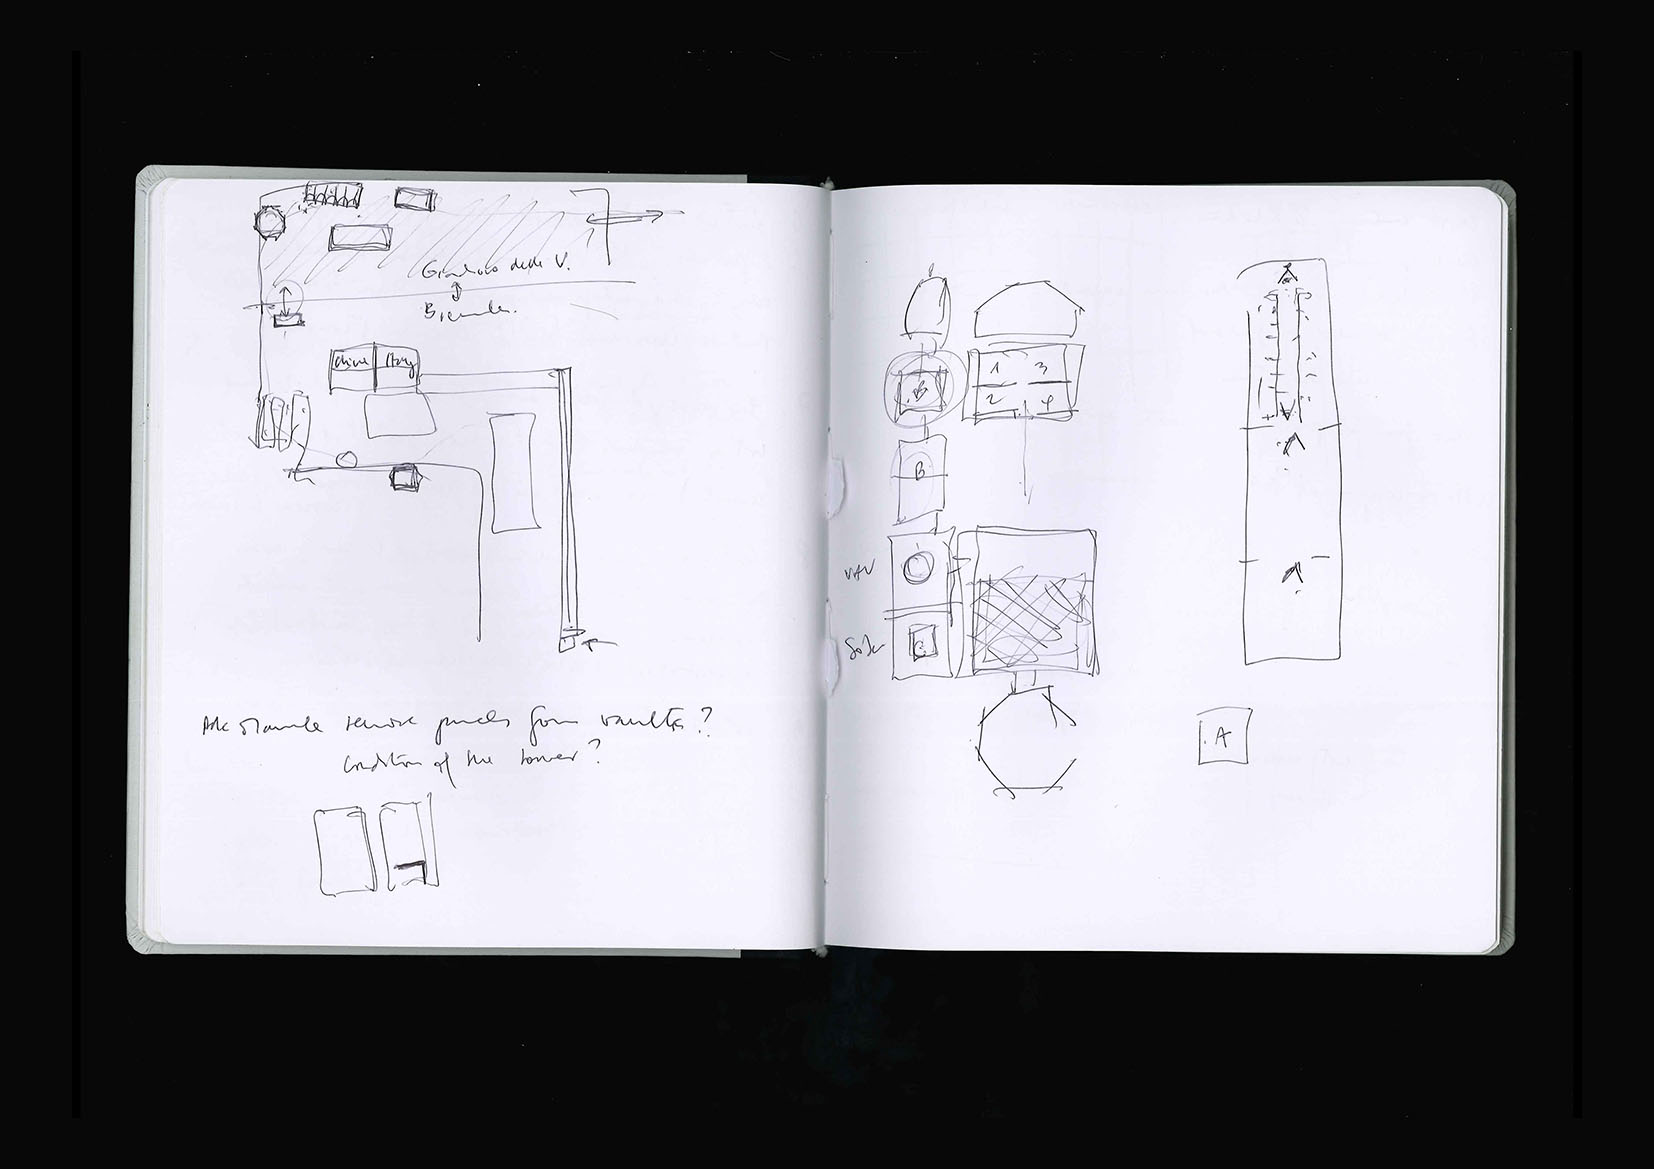 Giardino delle V.
Biennale.
china Italy
Ask Manuele remove panels from vaults?
Condition of the tower?
1 3
2 4
B
B
VAV
C
A